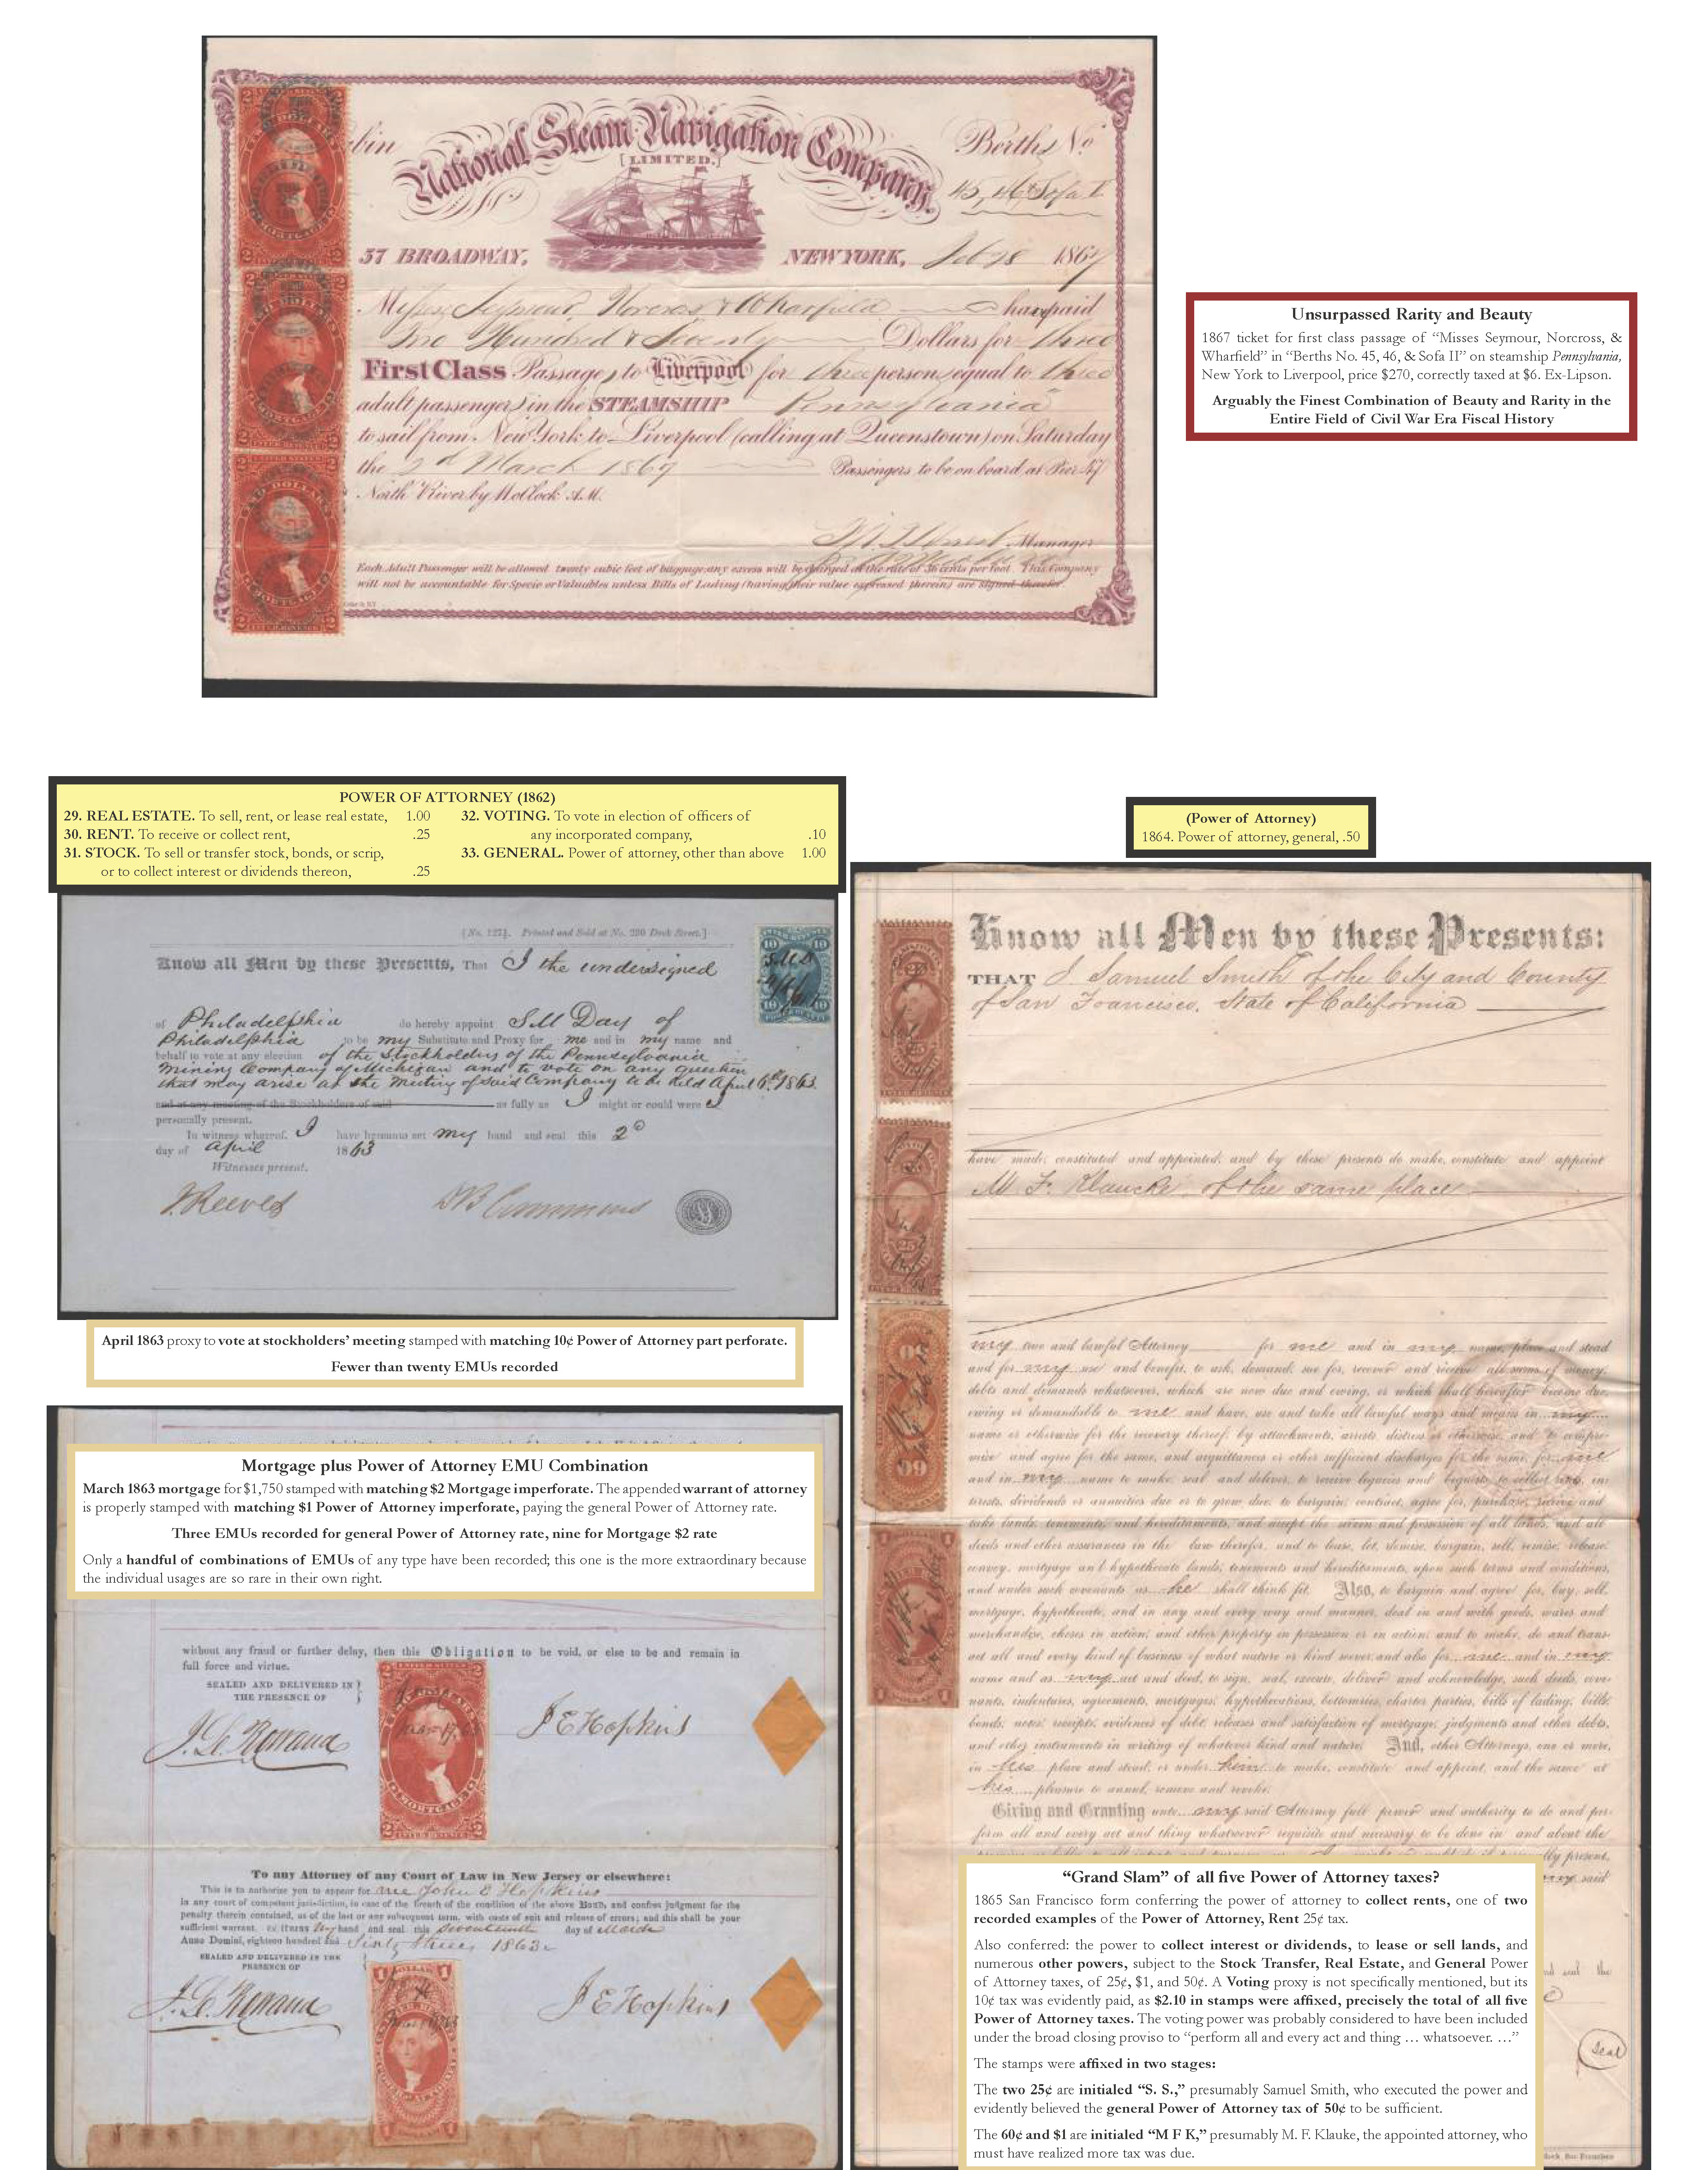 bin
National Steam Navigation Company.
[LIMITED.]
Berths No
45, 46 & Sofa II
57 BROADWAY,
NEW YORK, Feb 28 1867
Misses Seymour, Norcross & Wharfield have paid
Two Hundred & Seventy Dollars for three
First Class Passage, to Liverpool for three persons equal to three
adult passengers in the STEAMSHIP Pennsylvania
to sail from New York to Liverpool (calling at Queenstown) on Saturday
the 2d March 1867 Passengers to be on board at Pier 47
North River by
Manager
Each Adult Passenger will be allowed twenty cubic feet of baggage; any excess will be charged at the rate of 36 cents per foot. This Company
will not be accountable for Specie or Valuables unless Bills of Lading (having their value expressed therein) are signed therefor.
Unsurpassed Rarity and Beauty
1867 ticket for first class passage of “Misses Seymour, Norcross, &
Wharfield” in “Berths No. 45, 46, & Sofa II” on steamship Pennsylvania,
New York to Liverpool, price $270, correctly taxed at $6. Ex-Lipson.
Arguably the Finest Combination of Beauty and Rarity in the
Entire Field of Civil War Era Fiscal History
POWER OF ATTORNEY (1862)
29. REAL ESTATE. To sell, rent, or lease real estate, 1.00
30. RENT. To receive or collect rent, .25
31. STOCK. To sell or transfer stock, bonds, or scrip,
or to collect interest or dividends thereon, .25
32. VOTING. To vote in election of officers of
any incorporated company, .10
33. GENERAL. Power of attorney, other than above 1.00
[No. 127½. Printed and Sold at No. 230 Dock Street.]
Know all Men by these Presents, That I the undersigned
of Philadelphia do hereby appoint S M Day of
Philadelphia to be my Substitute and Proxy for me and in my name and
behalf to vote at any election of the Stockholders of the Pennsylvania
Mining Company of Michigan and to vote on any question
that may arise at the Meeting of said Company to be held April 6th 1863.
and at any meeting of the Stockholders of said as fully as I might or could were I
personally present.
In witness whereof, I have hereunto set my hand and seal this 2d
day of April 1863
Witnesses present.
J. Reeves
April 1863 proxy to vote at stockholders’ meeting stamped with matching 10¢ Power of Attorney part perforate.
Fewer than twenty EMUs recorded
Mortgage plus Power of Attorney EMU Combination
March 1863 mortgage for $1,750 stamped with matching $2 Mortgage imperforate. The appended warrant of attorney
is properly stamped with matching $1 Power of Attorney imperforate, paying the general Power of Attorney rate.
Three EMUs recorded for general Power of Attorney rate, nine for Mortgage $2 rate
Only a handful of combinations of EMUs of any type have been recorded; this one is the more extraordinary because
the individual usages are so rare in their own right.
without any fraud or further delay, then this Obligation to be void, or else to be and remain in
full force and virtue.
SEALED AND DELIVERED IN
THE PRESENCE OF
J E Hopkins
To any Attorney of any Court of Law in New Jersey or elsewhere:
This is to authorize you to appear for me John E Hopkins
in any court of competent jurisdiction, in case of the breach of the condition of the above Bond, and confess judgment for the
penalty therein contained, as of the last or any subsequent term, with costs of suit and release of errors; and this shall be your
sufficient warrant. Witness my hand and seal this Seventeenth day of March
Anno Domini, eighteen hundred and Sixty Three 1863.
SEALED AND DELIVERED IN THE
PRESENCE OF
J E Hopkins
(Power of Attorney)
1864. Power of attorney, general, .50
Know all Men by these Presents:
THAT I Samuel Smith of the City and County
of San Francisco, State of California
have made, constituted and appointed, and by these presents do make, constitute and appoint
M. F. Klaucke, of the same place
my true and lawful Attorney for me and in my name, place and stead
and for my use and benefit, to ask, demand, sue for, recover and receive all sums of money,
debts and demands whatsoever, which are now due and owing, or which shall hereafter become due,
owing or demandable to me and have, use and take all lawful ways and means in my
name or otherwise for the recovery thereof, by attachments, arrests, distress or otherwise, and to compro-
mise and agree for the same, and acquittances or other sufficient discharges for the same, for me
and in my name to make, seal and deliver, to receive legacies and bequests, to collect rents, in-
terests, dividends or annuities due or to grow due, to bargain, contract, agree for, purchase, receive and
take lands, tenements, and hereditaments, and accept the seizin and possession of all lands, and all
deeds and other assurances in the law therefor, and to lease, let, demise, bargain, sell, remise, release,
convey, mortgage and hypothecate lands, tenements and hereditaments, upon such terms and conditions,
and under such covenants as he shall think fit. Also, to bargain and agree for, buy, sell,
mortgage, hypothecate, and in any and every way and manner, deal in and with goods, wares and
merchandise, choses in action, and other property in possession or in action, and to make, do and trans-
act all and every kind of business of what nature or kind soever, and also for me and in my
name and as my act and deed, to sign, seal, execute, deliver and acknowledge, such deeds, cove-
nants, indentures, agreements, mortgages, hypothecations, bottomries, charter parties, bills of lading, bills,
bonds, notes, receipts, evidences of debt, releases and satisfaction of mortgage, judgments and other debts,
and other instruments in writing of whatever kind and nature. And, other Attorneys, one or more,
in his place and stead, or under him to make, constitute and appoint, and the same at
his pleasure to annul, remove and revoke.
Giving and Granting unto my said Attorney full power and authority to do and per-
form all and every act and thing whatsoever requisite and necessary to be done in and about the
“Grand Slam” of all five Power of Attorney taxes?
1865 San Francisco form conferring the power of attorney to collect rents, one of two
recorded examples of the Power of Attorney, Rent 25¢ tax.
Also conferred: the power to collect interest or dividends, to lease or sell lands, and
numerous other powers, subject to the Stock Transfer, Real Estate, and General Power
of Attorney taxes, of 25¢, $1, and 50¢. A Voting proxy is not specifically mentioned, but its
10¢ tax was evidently paid, as $2.10 in stamps were affixed, precisely the total of all five
Power of Attorney taxes. The voting power was probably considered to have been included
under the broad closing proviso to “perform all and every act and thing … whatsoever. …”
The stamps were affixed in two stages:
The two 25¢ are initialed “S. S.,” presumably Samuel Smith, who executed the power and
evidently believed the general Power of Attorney tax of 50¢ to be sufficient.
The 60¢ and $1 are initialed “M F K,” presumably M. F. Klauke, the appointed attorney, who
must have realized more tax was due.
Seal